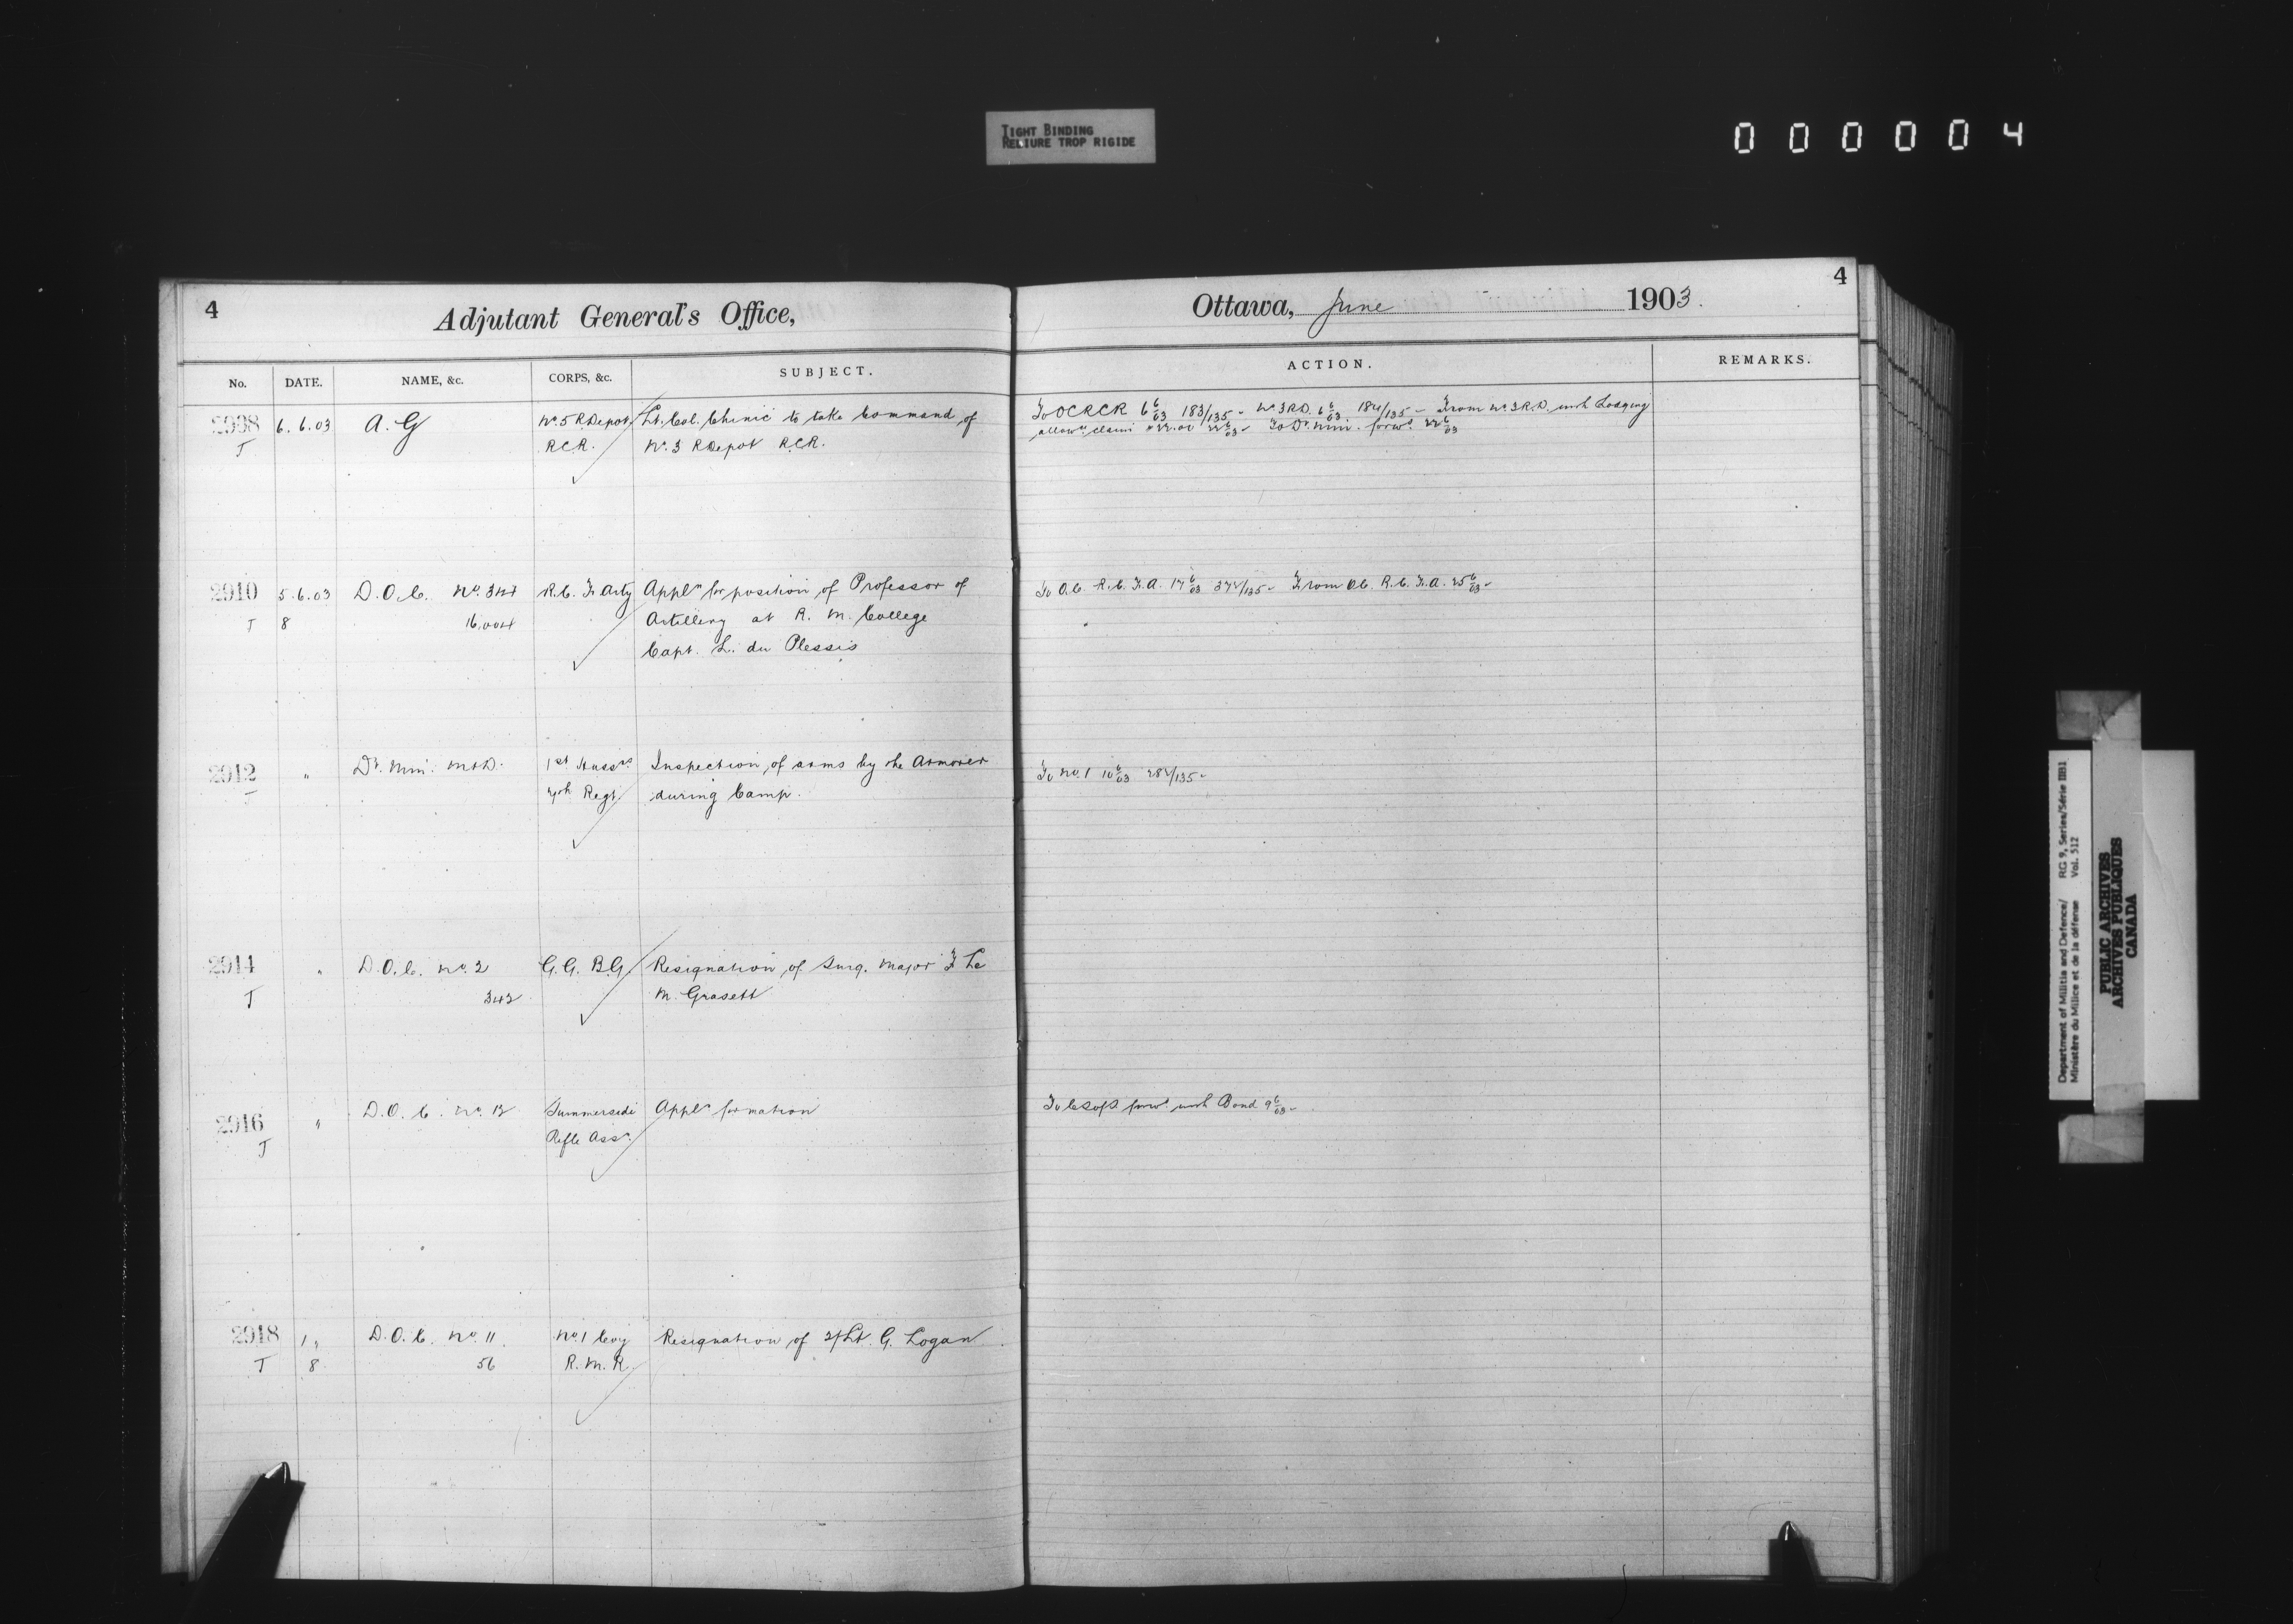 TIGHT BINDING
RELIURE TROP RIGIDE
000004
4
Adjutant General's Office,
Ottawa, June 1903.
4
No. DATE. NAME, &c. CORPS, &c. SUBJECT. ACTION. REMARKS.
2908 6.6.03 A.G No. 5 R Depot Lt. Col. Chinic to take Command of To OCRCR 6 6/03 183/135 - No. 3 R.D. 6 6/03 184/135 - From No. 3 R.D. with Lodging
T RCR. No. 3 R Depot RCR. allowce claim 22.00 22 6/03 - To Dy. Min. forwd. 22 6/03
2910 5.6.03 D.O.C. No. 344 R.C. F. Arty Appln for position of Professor of To O.C. R.C.F.A. 17 6/03 372/135 - From O.C. R.C.F.A. 25 6/03 -
T 8 16,004 Artillery at R. M. College
Capt. L. du Plessis
2912 " Dy. Min. M&D. 1st Hussrs Inspection of arms by the Armorer To No. 1 10 6/03 282/135 -
T 7th Regt. during Camp.
2914 " D.O.C. No. 2 G.G. B.G. Resignation of Surg. Major F Le
T 342 M. Grasett
2916 " D.O.C. No. 12 Summerside Appln formation To C.S. of S. forwd. with Bond 9 6/03 -
T Rifle Assn.
2918 1 " D.O.C. No. 11 No. 1 Coy Resignation of 2/Lt. G. Logan
T 8 56 R.M.R.
Department of Militia and Defence/ RG 9, Series/Série IIB1
Ministère du Milice et de la défense Vol. 512
PUBLIC ARCHIVES
ARCHIVES PUBLIQUES
CANADA